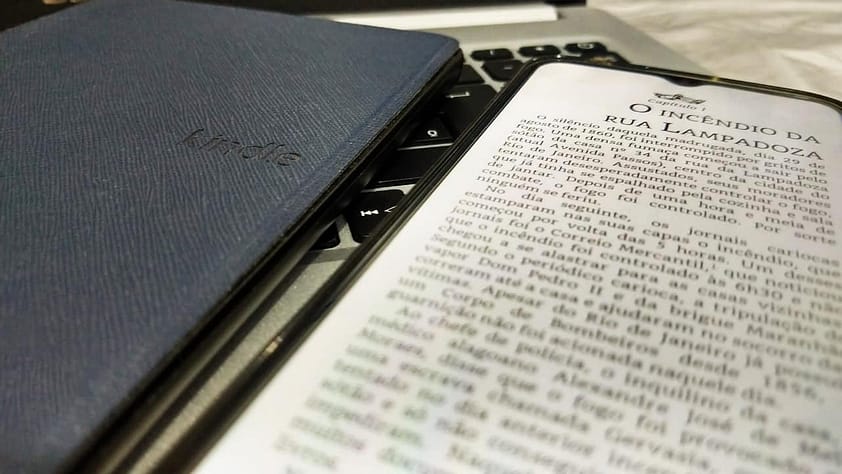 kindle
Capítulo 1
O INCÊNDIO DA
RUA LAMPADOZA
O silêncio daquela madrugada, dia 29 de
agosto de 1860, foi interrompido por gritos de
fogo. Uma densa fumaça começou a sair pelo
sótão da casa nº 34 da rua da Lampadoza
(atual Avenida Passos), centro da cidade do
Rio de Janeiro. Assustados, seus moradores
tentaram desesperadamente controlar o fogo,
que já tinha se espalhado pela cozinha e sala
de jantar. Depois de uma hora e meia de
combate, o fogo foi controlado. Por sorte
ninguém se feriu.
No dia seguinte, os jornais cariocas
estamparam nas suas capas o incêndio, que
começou por volta das 5 horas. Um desses
jornais foi o Correio Mercantil, que noticiou
que o incêndio foi controlado às 6h30 e
chegou a se alastrar para as casas vizinhas
Segundo o periódico carioca, a tripulação
vapor Dom Pedro II e da brigue Maranhã
correram até a casa e ajudaram no socorro
vítimas. Apesar do Rio de Janeiro já possu
um Corpo de Bombeiros desde 1856,
guarnição não foi acionada naquele dia.
Ao chefe de polícia, o inquilino da casa,
médico alagoano Alexandre José de
Moraes, disse que o fogo foi
uma escrava chamada Gervasia
no dia anterior
sótão e só não